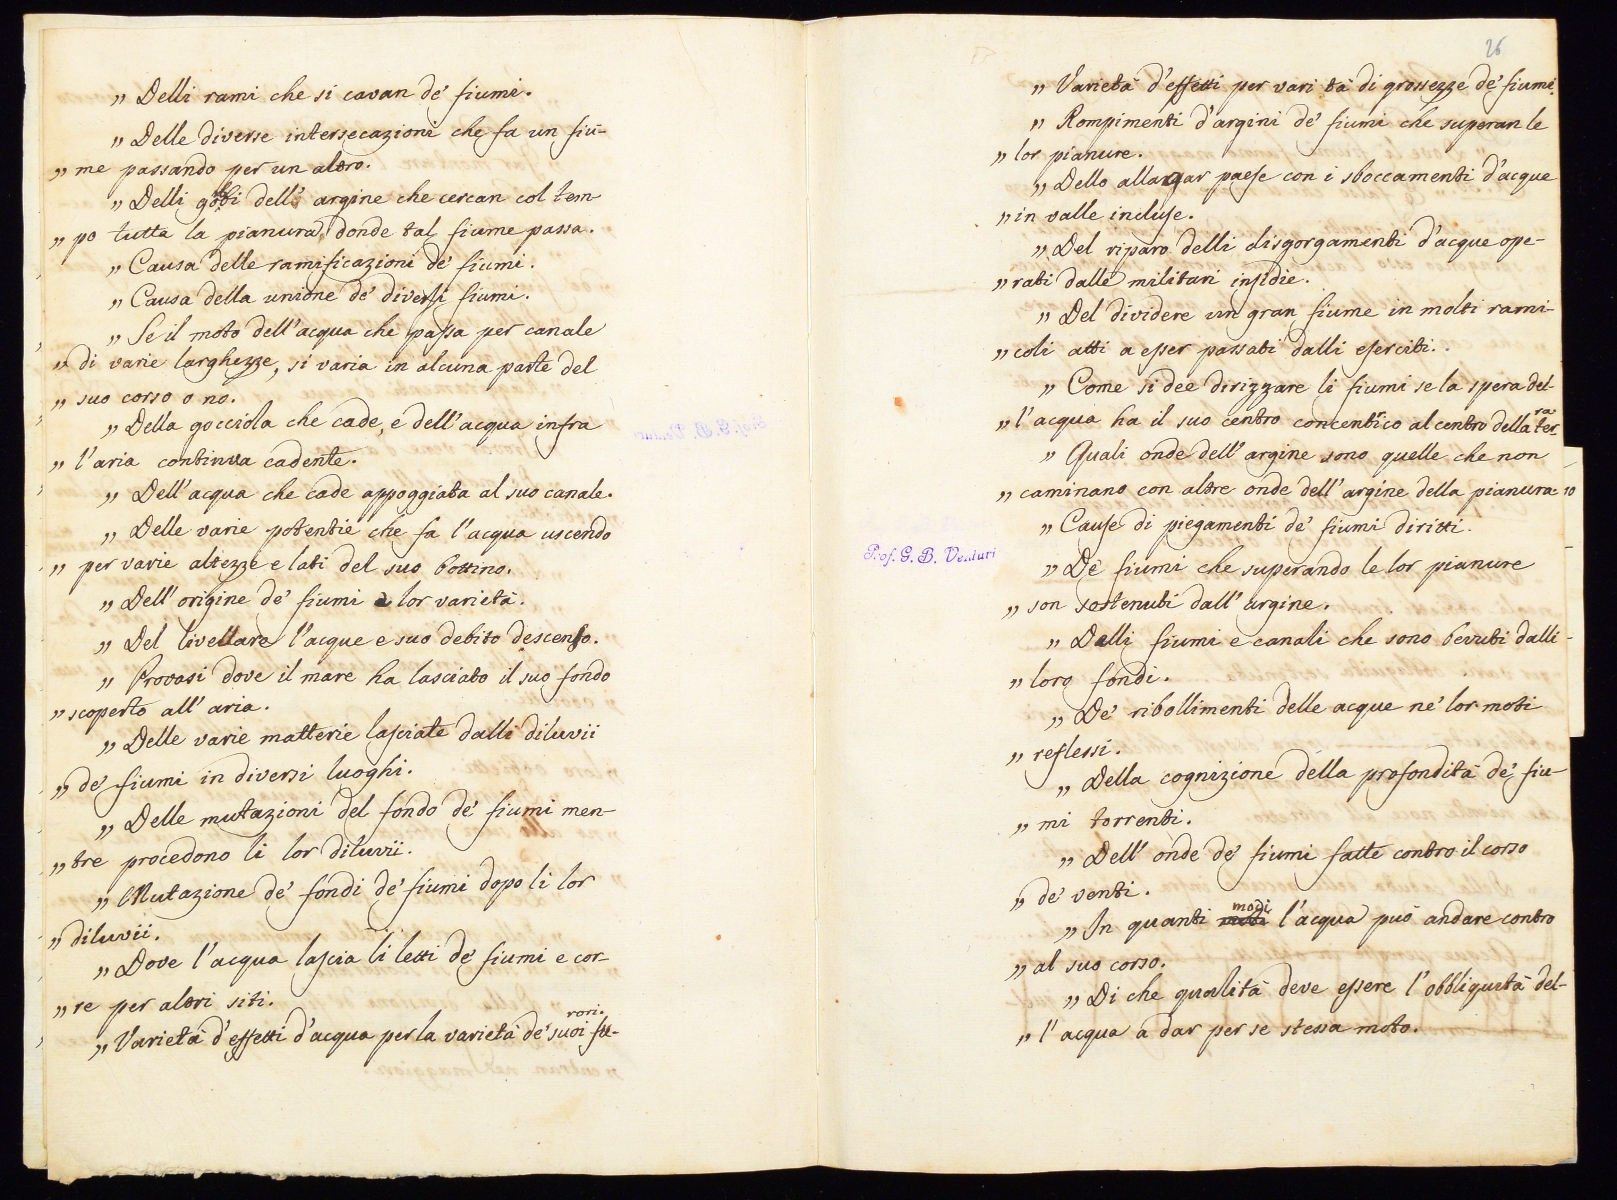 „ Delli rami che si cavan de' fiumi.
„ Delle diverse intersecazioni che fa un fiu-
„ me passando per un altro.
„ Delli gobbi dell' argine che cercan col tem
„ po tutta la pianura, donde tal fiume passa.
„ Causa delle ramificazioni de' fiumi.
„ Causa della unione de' diversi fiumi.
„ Se il moto dell'acqua che passa per canale
„ di varie larghezze, si varia in alcuna parte del
„ suo corso o no.
„ Della gocciola che cade, e dell'acqua infra
„ l'aria continua cadente.
„ Dell'acqua che cade appoggiata al suo canale.
„ Delle varie potentie che fa l'acqua uscendo
„ per varie altezze e lati del suo bottino.
„ Dell'origine de' fiumi e lor varietà.
„ Del livellare l'acque e suo debito descenso.
„ Provasi dove il mare ha lasciato il suo fondo
„ scoperto all' aria.
„ Delle varie matterie lasciate dalli diluvii
„ de' fiumi in diversi luoghi.
„ Delle mutazioni del fondo de' fiumi men-
„ tre procedono li lor diluvii.
„ Mutazione de' fondi de' fiumi dopo li lor
„ diluvii.
„ Dove l'acqua lascia li letti de' fiumi e cor-
„ re per altri siti.
rori.
„ Varietà d'effetti d'acqua per la varietà de' suoi fu-
26
„ Varietà d'effetti per vari tà di grossezze de' fiumi.
„ Rompimenti d'argini de' fiumi che superan le
„ lor pianure.
„ Dello allargar paese con i sboccamenti d'acque
„ in valle incluse.
„ Del riparo delli disgorgamenti d'acque ope-
„ rati dalle militari insidie.
„ Del dividere un gran fiume in molti rami-
„ coli atti a esser passati dalli eserciti.
„ Come si dee dirizzare li fiumi se la spera del-
ra
„ l'acqua ha il suo centro concentrico al centro della ter-
„ Quali onde dell' argine sono quelle che non
„ caminano con altre onde dell' argine della pianura. 10
„ Cause di piegamenti de' fiumi diritti.
Prof. G. B. Venturi
„ De' fiumi che superando le lor pianure
„ son sostenuti dall' argine.
„ Delli fiumi e canali che sono bevuti dalli
„ loro fondi.
„ De' ribollimenti delle acque ne' lor moti
„ reflessi.
„ Della cognizione della profondità de' fiu-
„ mi torrenti.
„ Dell' onde de' fiumi fatte contro il corso
„ de' venti.
modi
„ In quanti moti l'acqua può andare contro
„ al suo corso.
„ Di che qualità deve essere l'obbliquità del-
„ l' acqua a dar per se stessa moto.